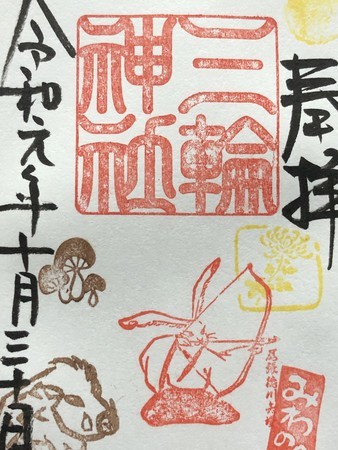 奉拝
三輪
神社
令和元年十月三十日
尾張徳川
みわの